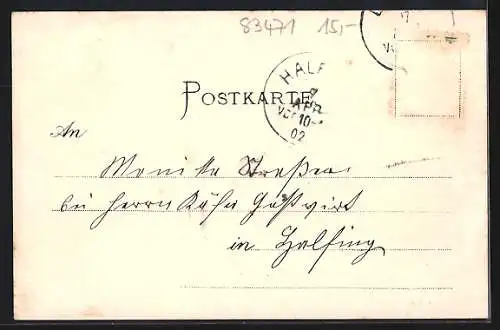 83471 15,-
POSTKARTE
HALF
APR
VOR 10-
02
An
Monika
bei Herrn Gastwirt
in Halfing